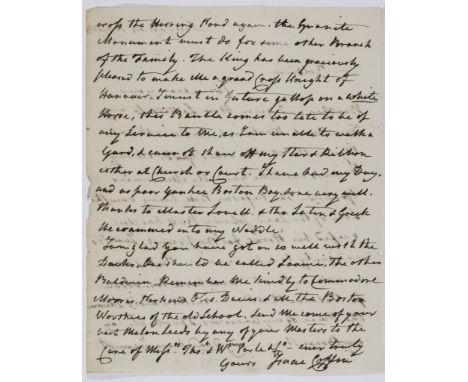 cross the Herring Pond again. the Granite
Monument must do for some other Branch
of the Family. The King has been graciously
pleased to make me a grand Cross Knight of
Hanover. I must in future gallop on a white
Horse, this Bauble comes too late to be of
any Service to me, as I am unable to walk a
Yard, & cannot shew off my Star & Ribbon
either at Church or Court. I have had my Day,
and as poor Yankee Boston Boy, done very well.
thanks to Master Lovell & the Latin & Greek
He crammed into my Noddle:
I am glad you have got on so well with the
Ducks. One have to be called the other
Baldwin. Remember me kindly to Commodore
Morris, Perkins Davis & all the Boston
Worthies of the old School. Send me some of your
best Melon Seeds by any of your Masters to the
Care of Messrs Tho.s & Wm &c ever truly
Yours Isaac Coffin